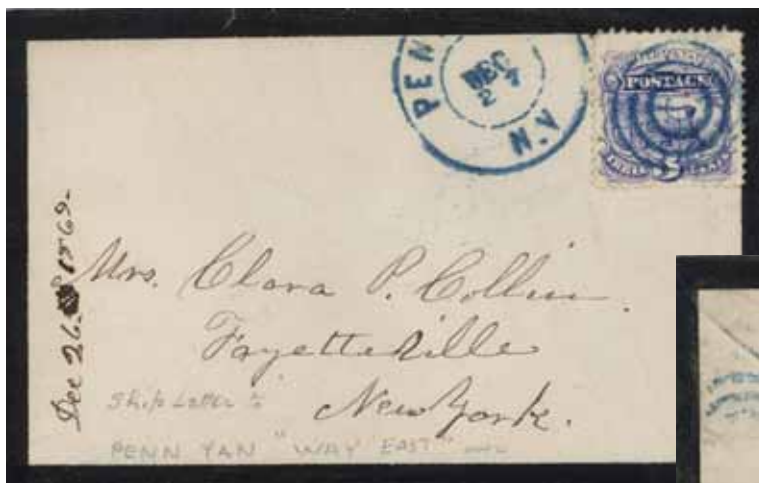 PEN
DEC
27
N.Y
POSTAGE
Dec 26 1869-
Mrs. Clara P. Collin.
Fayetteville
New York.
Ship Letter
PENN YAN "WAY EAST"